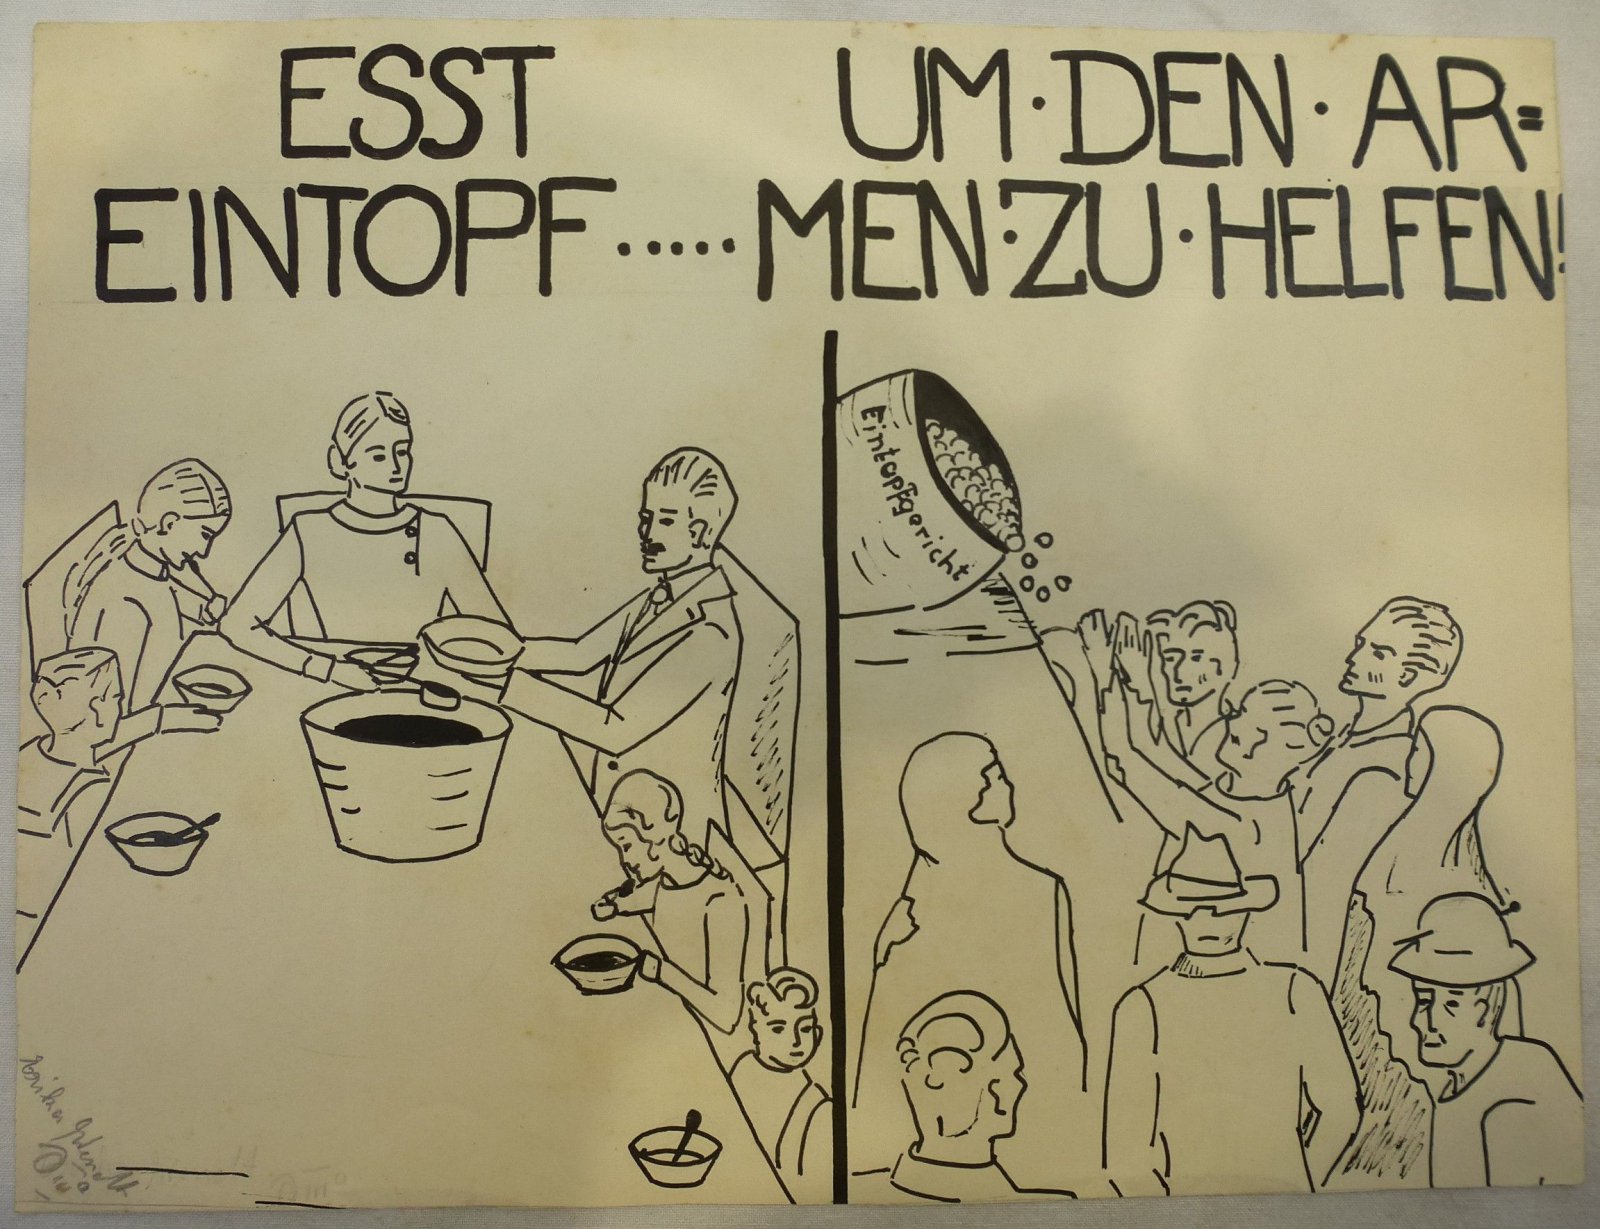 ESST
EINTOPF.....
UM·DEN·AR=
MEN·ZU·HELFEN!
Eintopfgericht